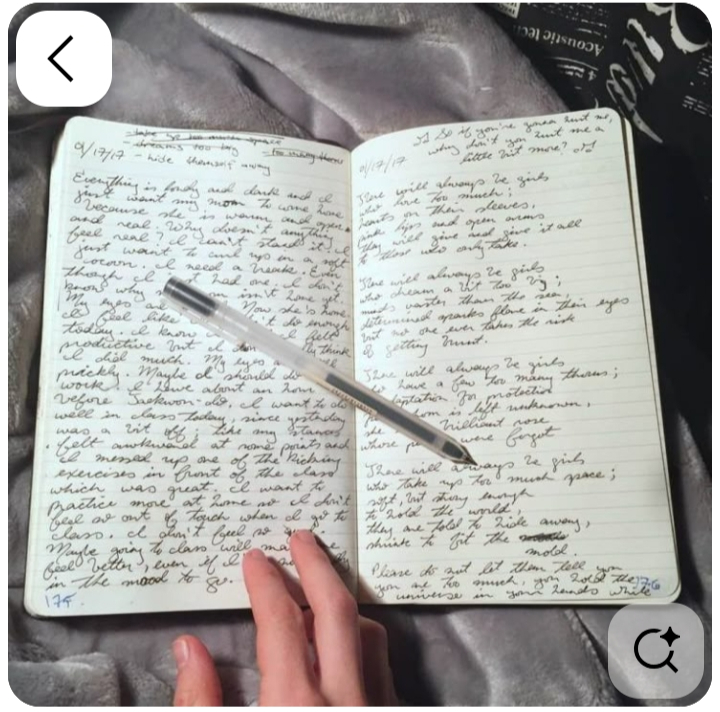 - take up too much space
- dreams too big
- too many thorns
9/17/17 - hide themself away
Everything is lonely and dark and I
just want my mom to come home
because she is warm and
and real. Why doesn't anything
feel real? I can't stand it. I
just want to curl up in a soft
cocoon. I need a break. Even
though I just had one. I don't
know why mom isn't home yet.
My eyes are Now she's home.
I feel like I didn't do enough
today. I know I felt
productive but I don't think
I did much. My eyes
prickly. Maybe I should do
work. I have about an hour
before Taekwon-do. I want to do
well in class today, since yesterday
was a bit off; like my stances
felt awkward at some points and
I messed up one of the kicking
exercises in front of the class
which was great. I want to
practice more at home so I don't
feel so out of touch when I go to
class. I don't feel so good.
Maybe going to class will make me
feel better, even if I
in the mood to go.
175
So if you're gonna hurt me,
why don't you hurt me a
little bit more?
9/17/17
There will always be girls
who love too much;
hearts on their sleeves,
pink lips and open arms
they will give and give it all
to those who only take.
There will always be girls
who dream a bit too big;
minds vaster than the sea,
determined sparks flare in their eyes
but no one ever takes the risk
of getting burnt.
There will always be girls
who have a few too many thorns;
adaptation for protection
whom is left unknown,
she brilliant rose
whose were forgot
There will always be girls
who take up too much space;
soft, but strong enough
to hold the world,
they are told to hide away,
shrink to fit the
mold.
Please do not let them tell you
you are too much, you hold the
universe in your hands while
176
Acoustic